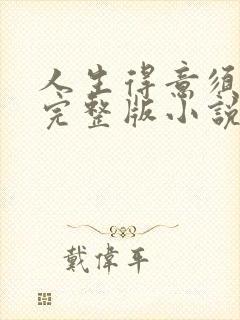 人生得意須
完整版小說
戴偉平